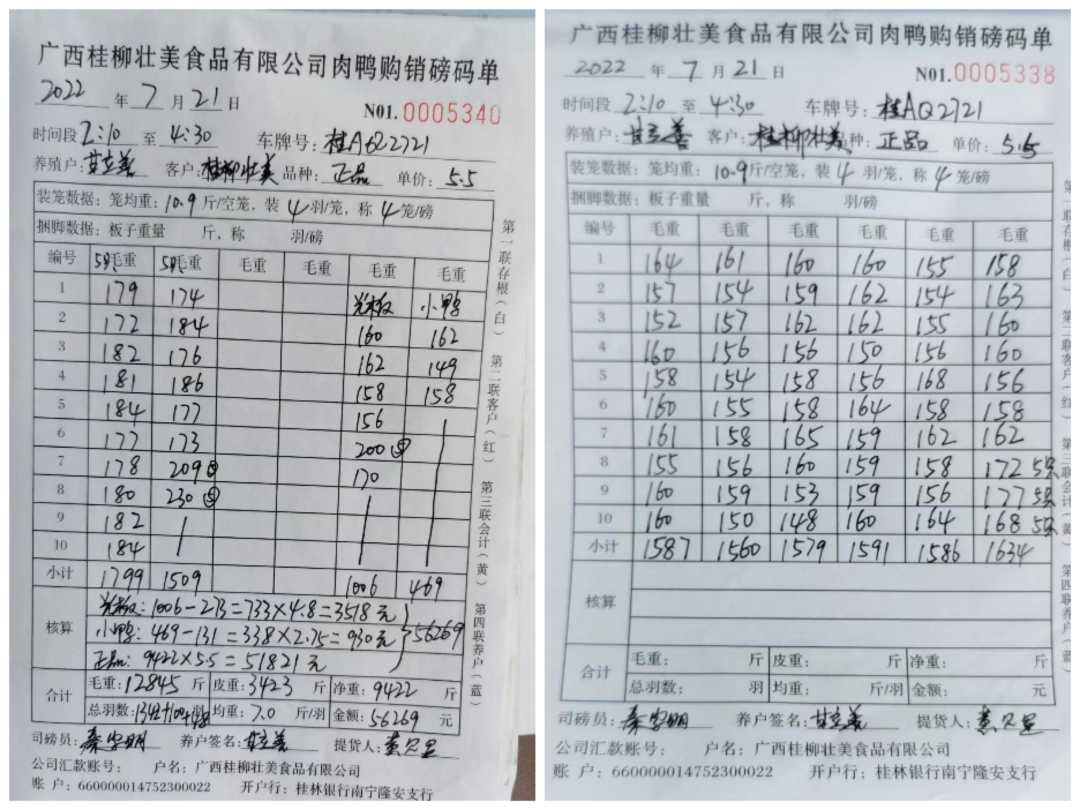 广西桂柳壮美食品有限公司肉鸭购销磅码单
2022 年 7 月 21 日 N01.0005340
时间段 2:10 至 4:30 车牌号：桂AQ2721
养殖户：甘立善 客户：桂柳壮美 品种：正品 单价：5.5
装笼数据：笼均重：10.9 斤/空笼，装 4 羽/笼，称 4 笼/磅
捆脚数据：板子重量 斤，称 羽/磅
编号 5只毛重 5只毛重 毛重 毛重 毛重 毛重
1 179 174 光板 小鸭
2 172 184 160 162
3 182 176 162 149
4 181 186 158 158
5 184 177 156
6 177 173 200
7 178 209 170
8 180 230
9 182
10 184
小计 1799 1509 1006 469
核算
光板：1006-273=733×4.8=3518元
小鸭：469-131=338×2.75=930元
正品：9422×5.5=51821元
56269
合计
毛重：12845 斤 皮重：3423 斤 净重：9422 斤
总羽数：1342+100+48 羽 均重：7.0 斤/羽 金额：56269 元
司磅员：秦 明 养户签名：甘立善 提货人：
公司汇款账号： 户名：广西桂柳壮美食品有限公司
账 户：660000014752300022 开户行：桂林银行南宁隆安支行
第一联存根（白） 第二联客户（红） 第三联会计（黄） 第四联养户（蓝）
广西桂柳壮美食品有限公司肉鸭购销磅码单
2022 年 7 月 21 日 N01.0005338
时间段 2:10 至 4:30 车牌号：桂AQ2721
养殖户：甘立善 客户：桂柳壮美 品种：正品 单价：5.5
装笼数据：笼均重：10.9 斤/空笼，装 4 羽/笼，称 4 笼/磅
捆脚数据：板子重量 斤，称 羽/磅
编号 毛重 毛重 毛重 毛重 毛重 毛重
1 164 161 160 160 155 158
2 157 154 159 162 154 163
3 152 157 162 162 155 160
4 160 156 156 150 156 160
5 158 154 158 156 168 156
6 160 155 158 164 158 158
7 161 158 165 159 162 162
8 155 156 160 159 158 172 5只
9 160 159 153 159 156 177 5只
10 160 150 148 160 164 168 5只
小计 1587 1560 1579 1591 1586 1634
核算
合计
毛重： 斤 皮重： 斤 净重： 斤
总羽数： 羽 均重： 斤/羽 金额： 元
司磅员：秦 明 养户签名：甘立善 提货人：
公司汇款账号： 户名：广西桂柳壮美食品有限公司
账 户：660000014752300022 开户行：桂林银行南宁隆安支行